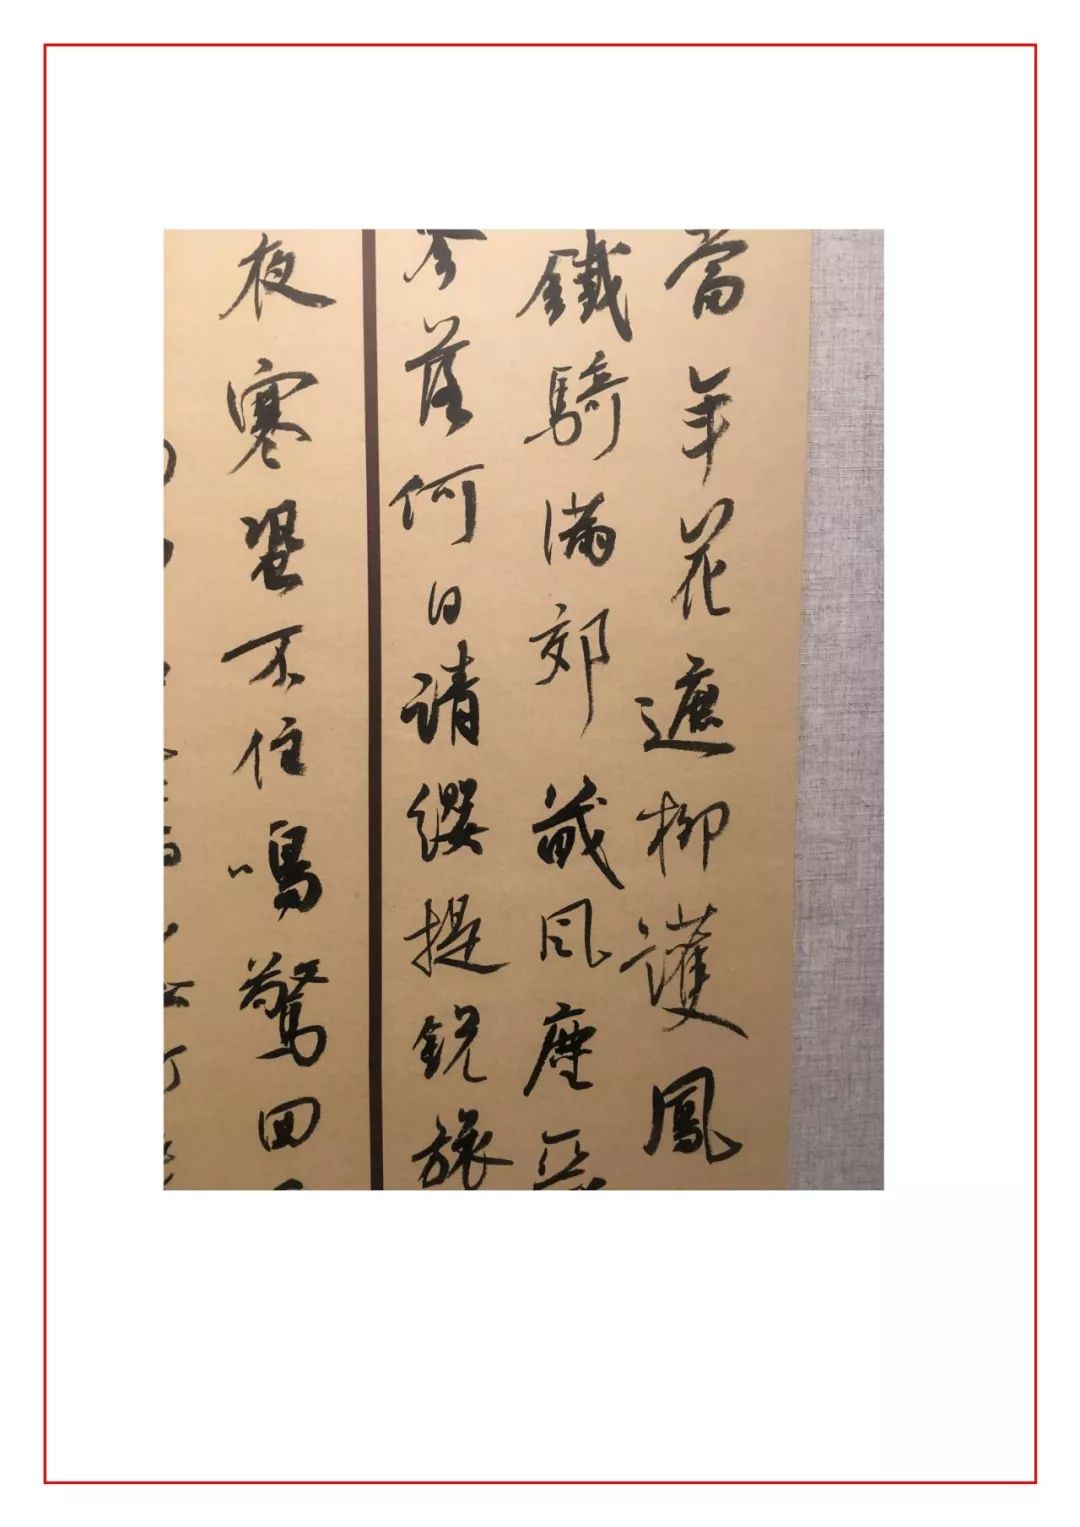 當年花遮柳護鳳
鐵騎滿郊畿風塵
落何日請纓提銳旅
夜寒蛩不住鳴驚回